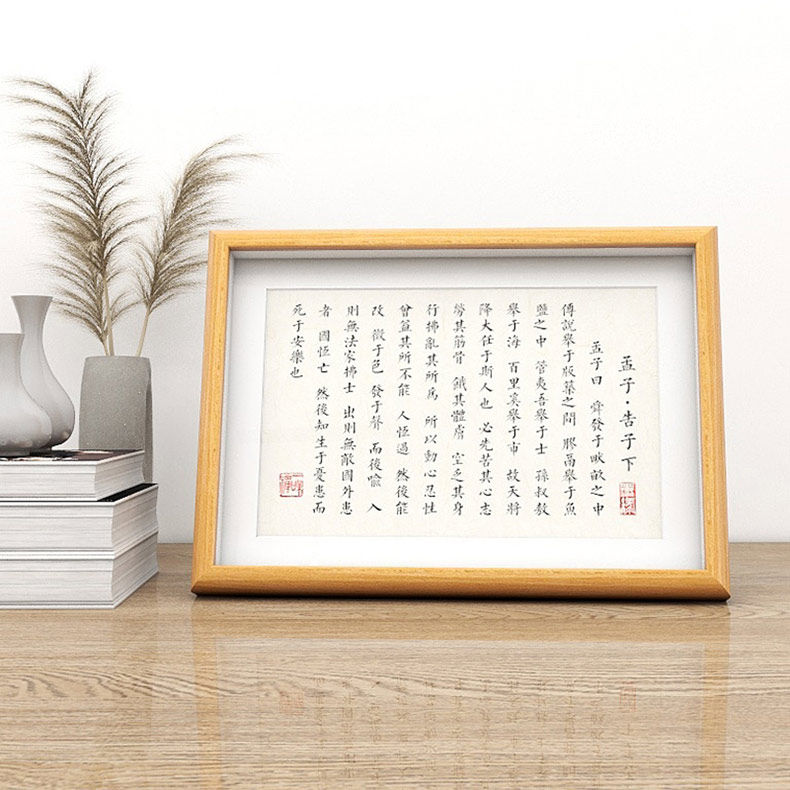 孟子·告子下
孟子曰 舜發于畎畝之中
傅說舉于版築之間 膠鬲舉于魚
鹽之中 管夷吾舉于士 孫叔敖
舉于海 百里奚舉于市 故天將
降大任于斯人也 必先苦其心志
勞其筋骨 餓其體膚 空乏其身
行拂亂其所為 所以動心忍性
曾益其所不能 人恆過 然後能
改 徵于色 發于聲 而後喻 入
則無法家拂士 出則無敵國外患
者 國恆亡 然後知生于憂患而
死于安樂也